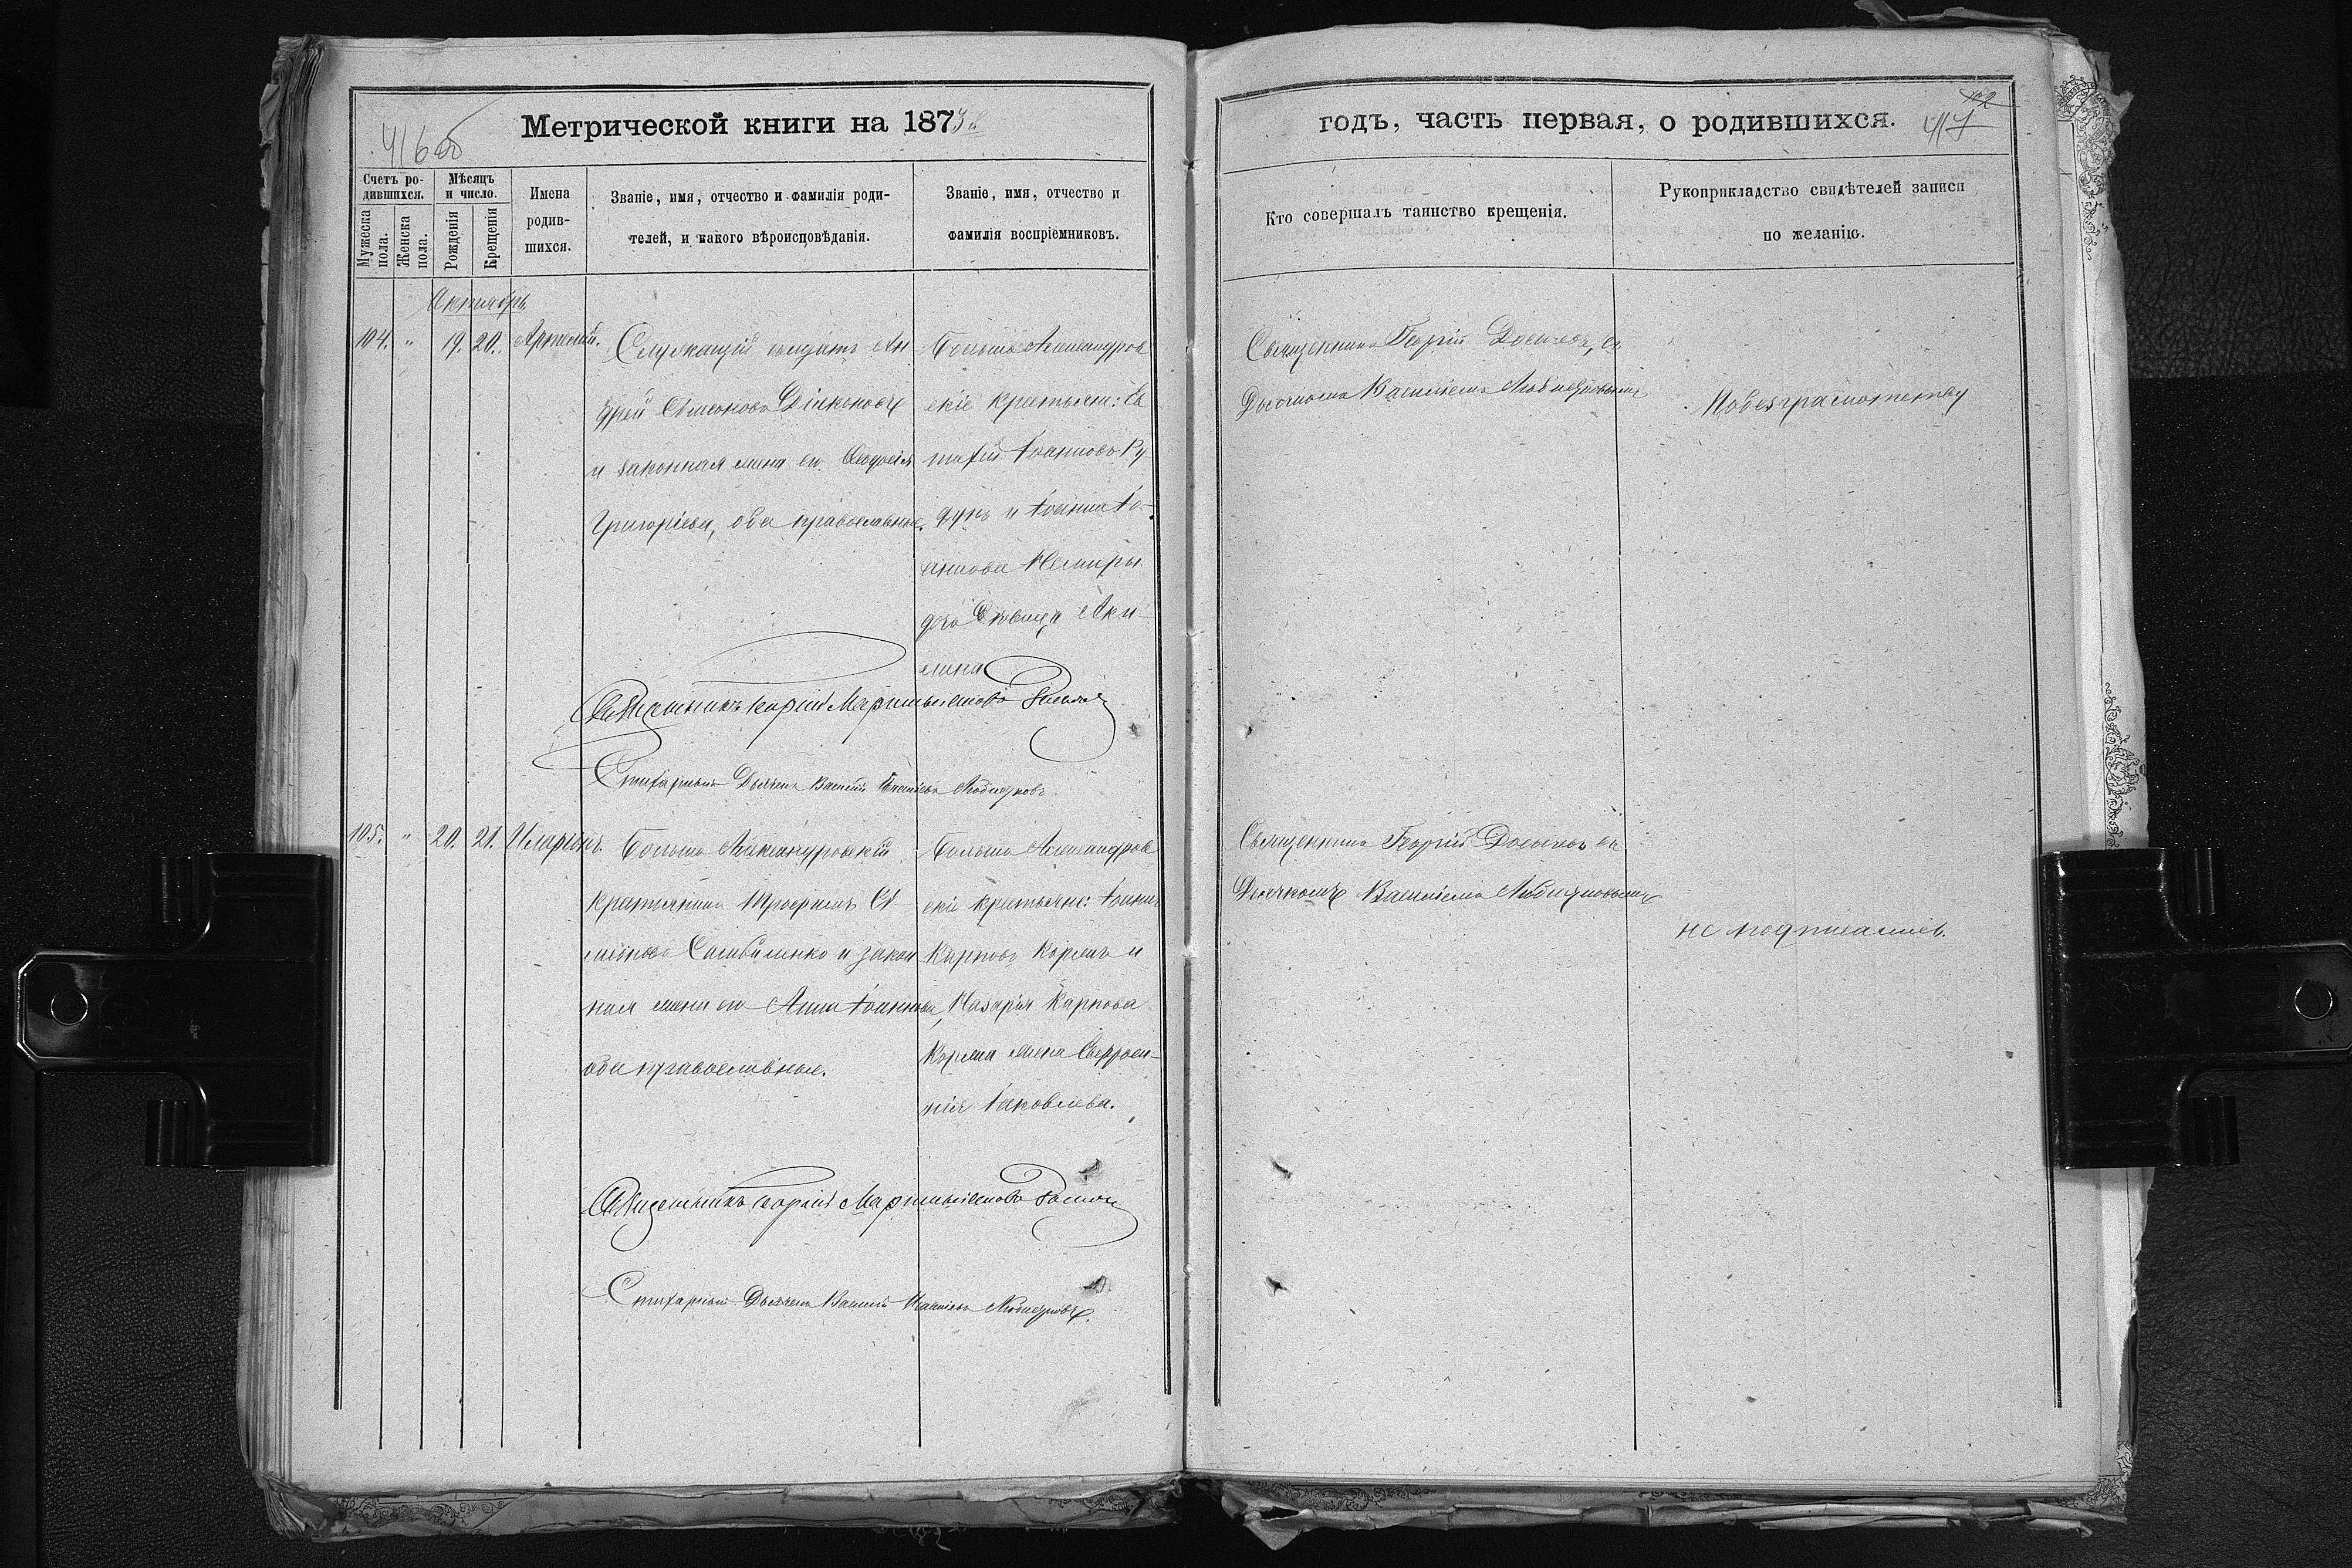 416 об
Метрической книги на 1873 й
Счетъ ро-
дившихся.
Мѣсяцъ
и число.
Мужеска пола.
Женска пола.
Рожденія
Крещенія
Имена
родив-
шихся.
Званіе, имя, отчество и фамилія роди-
телей, и какого вѣроисповѣданія.
Званіе, имя, отчество и
фамилія воспріемниковъ.
Октябрь
104. " 19. 20. Артемій.
Служащій солдатъ Ан
дрей Симоновъ Діяконовъ
и законная жена его Ѳеодосія
Григоріева, оба православные.
Больше Александров
скіе крестьяне: Ев
тихій Іоанновъ Ру
дунъ и Іоанна Іо-
аннова Немиры
дочь дѣвица Аки-
лина
Священникъ Георгій Мартиніановъ
Стихарный Дьячекъ Василій Любицковъ
105. " 20. 21. Иларіонъ.
Больше Александровскій
крестьянинъ Трофимъ Си
меоновъ и закон
ная жена его Анна Іоаннова,
оба православные.
Больше Александров
скіе крестьяне: Іоаннъ
Карповъ Коржъ и
Назарія Карпова
Коржа жена Евфроси-
нія Іаковлева.
Священникъ Георгій Мартиніановъ
Стихарный Дьячекъ Василій Любицковъ.
годъ, часть первая, о родившихся.
417
Кто совершалъ таинство крещенія.
Рукоприкладство свидѣтелей записи
по желанію.
Священникъ Георгій Досычевъ, съ
Дьячкомъ Василіемъ Любицковымъ
По безграмотству
Священникъ Георгій Досычевъ съ
Дьячкомъ Василіемъ Любицковымъ
не подписались.